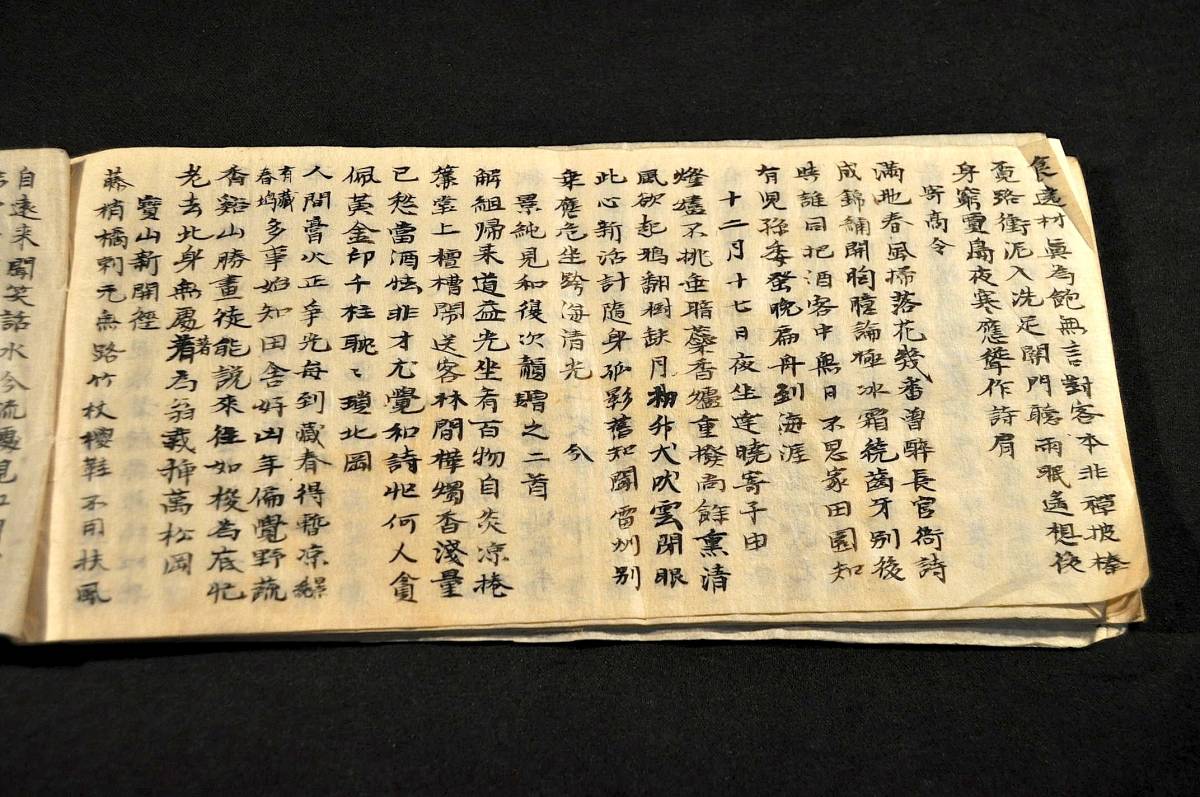 食遶村眞為飽無言對客本非禪披榛
覔路衝泥入洗足關門聽雨眠遙想後
身窮賈島夜寒應聳作詩肩
寄高令
滿地春風掃落花幾番曽醉長官衙詩
成錦繡開胸臆論極冰霜繞齒牙别後
誰同把酒客中無日不思家田園知
有兒孫委蚤晚扁舟到海涯
十二月十七日夜坐達曉寄子由
燈燼不挑垂暗蘂香爐重撥尚餘熏清
風欲起鴉翻樹缺月初升犬吠雲閉眼
此心新活計隨身孤影舊知聞雷州别
乗應危坐跨海清光 分
景純見和復次韻贈之二首
解組歸来道益光坐看百物自炎凉捲
簾堂上檀槽閙送客林間樺燭香淺量
已愁當酒怯非才尤覺和詩忙何人貪
佩黃金印千柱眈〻瑣北岡
人間膏火正爭光每到藏春得暫凉景純
有藏春塢多事始知田舍好凶年偏覺野蔬
香谿山勝畫徒能說來往如梭為底忙
老去此身無處着著為翁栽揷萬松岡
寶山新開徑
藤梢橘刺元無路竹杖椶鞋不用扶風
自遠来聞笑話水分流處見江